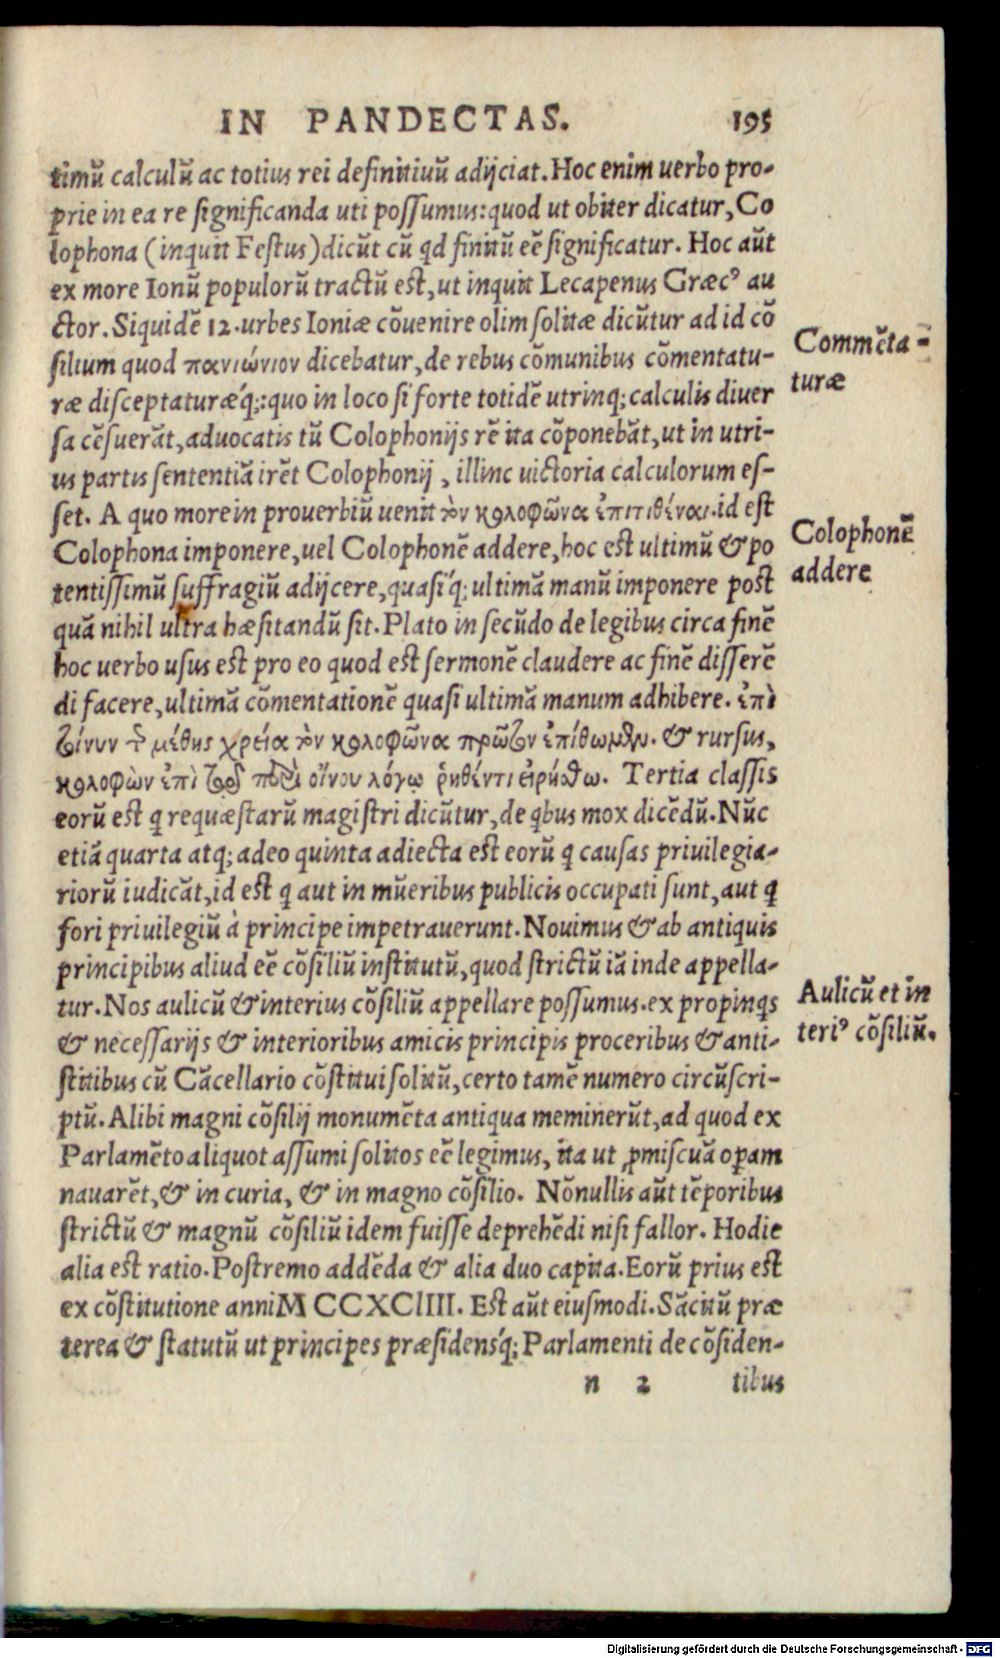 IN PANDECTAS. 195
timũ calculũ ac totius rei definitiuũ adijciat. Hoc enim uerbo pro-
prie in ea re significanda uti possumus: quod ut obiter dicatur, Co
lophona (inquit Festus) dicũt cũ qd finitũ eẽ significatur. Hoc aũt
ex more Ionũ populorũ tractũ est, ut inquit Lecapenus Græcꝰ au
ctor. Siquidẽ 12. urbes Ioniæ cõuenire olim solitæ dicũtur ad id cõ
silium quod πανιώνιον dicebatur, de rebus cõmunibus cõmentatu-
ræ disceptaturæq́;: quo in loco si forte totidẽ utrinq; calculis diuer
sa cẽsuerãt, aduocatis tũ Colophonijs rẽ ita cõponebãt, ut in utri-
us partis sententiã irẽt Colophonij, illinc uictoria calculorum es-
set. A quo more in prouerbiũ uenit τὸν κολοφῶνα ἐπιτιθέναι. id est
Colophona imponere, uel Colophonẽ addere, hoc est ultimũ & po
tentissimũ suffragiũ adijcere, quasiq́; ultimã manũ imponere post
quã nihil ultra hæsitandũ sit. Plato in secũdo de legibus circa finẽ
hoc uerbo usus est pro eo quod est sermonẽ claudere ac finẽ disserẽ
di facere, ultimã cõmentationẽ quasi ultimã manum adhibere. ἐπὶ
τοίνυν τῇ μέθης χρεία τὸν κολοφῶνα πρῶτον ἐπιθώμεθα. & rursus,
κολοφὼν ἐπὶ τῷ περὶ οἴνου λόγῳ ῥηθέντι εἰρήσθω. Tertia classis
eorũ est q requæstarũ magistri dicũtur, de qbus mox dicẽdũ. Nũc
etiã quarta atq; adeo quinta adiecta est eorũ q causas priuilegia-
riorũ iudicãt, id est q aut in mũeribus publicis occupati sunt, aut q
fori priuilegiũ à principe impetrauerunt. Nouimus & ab antiquis
principibus aliud eẽ cõsiliũ institutũ, quod strictũ iã inde appella-
tur. Nos aulicũ & interius cõsiliũ appellare possumus. ex propinqs
& necessarijs & interioribus amicis principis proceribus & anti-
stitibus cũ Cãcellario cõstitui solitũ, certo tamẽ numero circũscri-
ptũ. Alibi magni cõsilij monumẽta antiqua meminerũt, ad quod ex
Parlamẽto aliquot assumi solitos eẽ legimus, ita ut ꝓmiscuã oꝑam
nauarẽt, & in curia, & in magno cõsilio. Nõnullis aũt tẽporibus
strictũ & magnũ cõsiliũ idem fuisse deprehẽdi nisi fallor. Hodie
alia est ratio. Postremo addẽda & alia duo capita. Eorũ prius est
ex cõstitutione anni M CCXCIIII. Est aũt eiusmodi. Sãcitũ præ
terea & statutũ ut principes præsidensq́; Parlamenti de cõsiden-
n 2 tibus
Commẽta-
turæ
Colophonẽ
addere
Aulicũ et in
teriꝰ cõsiliũ.
Digitalisierung gefördert durch die Deutsche Forschungsgemeinschaft - DFG